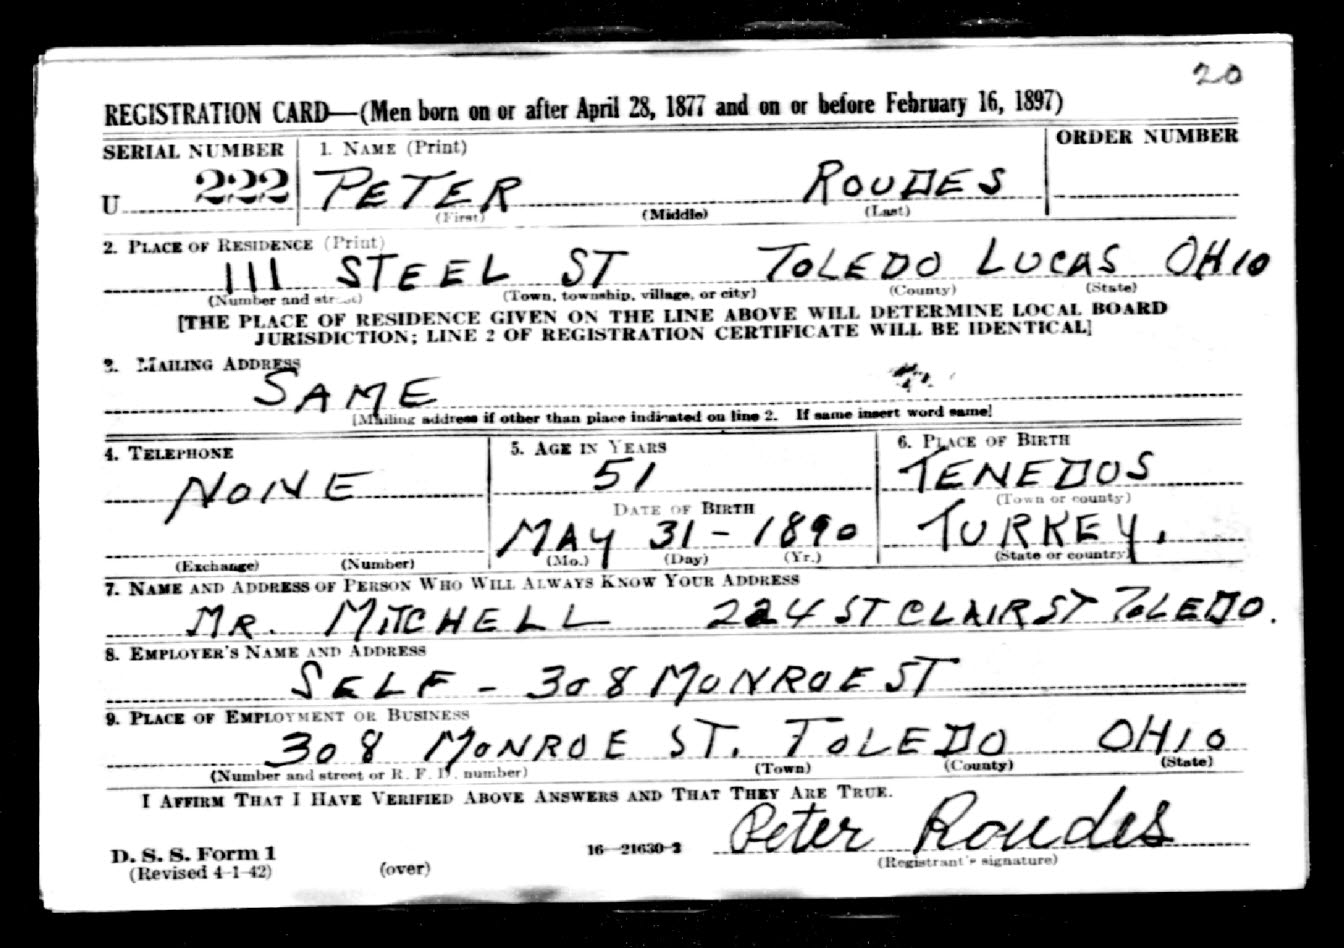 20
REGISTRATION CARD—(Men born on or after April 28, 1877 and on or before February 16, 1897)
SERIAL NUMBER 1. NAME (Print) ORDER NUMBER
U 222 PETER ROUDES
(First) (Middle) (Last)
2. PLACE OF RESIDENCE (Print)
111 STEEL ST TOLEDO LUCAS OHIO
(Number and street) (Town, township, village, or city) (County) (State)
[THE PLACE OF RESIDENCE GIVEN ON THE LINE ABOVE WILL DETERMINE LOCAL BOARD
JURISDICTION; LINE 2 OF REGISTRATION CERTIFICATE WILL BE IDENTICAL]
3. MAILING ADDRESS
SAME
[Mailing address if other than place indicated on line 2. If same insert word same]
4. TELEPHONE 5. AGE IN YEARS 6. PLACE OF BIRTH
NONE 51 TENEDOS
DATE OF BIRTH (Town or county)
MAY 31-1890 TURKEY.
(Exchange) (Number) (Mo.) (Day) (Yr.) (State or country)
7. NAME AND ADDRESS OF PERSON WHO WILL ALWAYS KNOW YOUR ADDRESS
MR. MITCHELL 224 ST CLAIR ST TOLEDO.
8. EMPLOYER'S NAME AND ADDRESS
SELF - 308 MONROE ST
9. PLACE OF EMPLOYMENT OR BUSINESS
308 MONROE ST. TOLEDO OHIO
(Number and street or R. F. D. number) (Town) (County) (State)
I AFFIRM THAT I HAVE VERIFIED ABOVE ANSWERS AND THAT THEY ARE TRUE.
Peter Roudes
D. S. S. Form 1 16—21630-2 (Registrant's signature)
(Revised 4-1-42) (over)